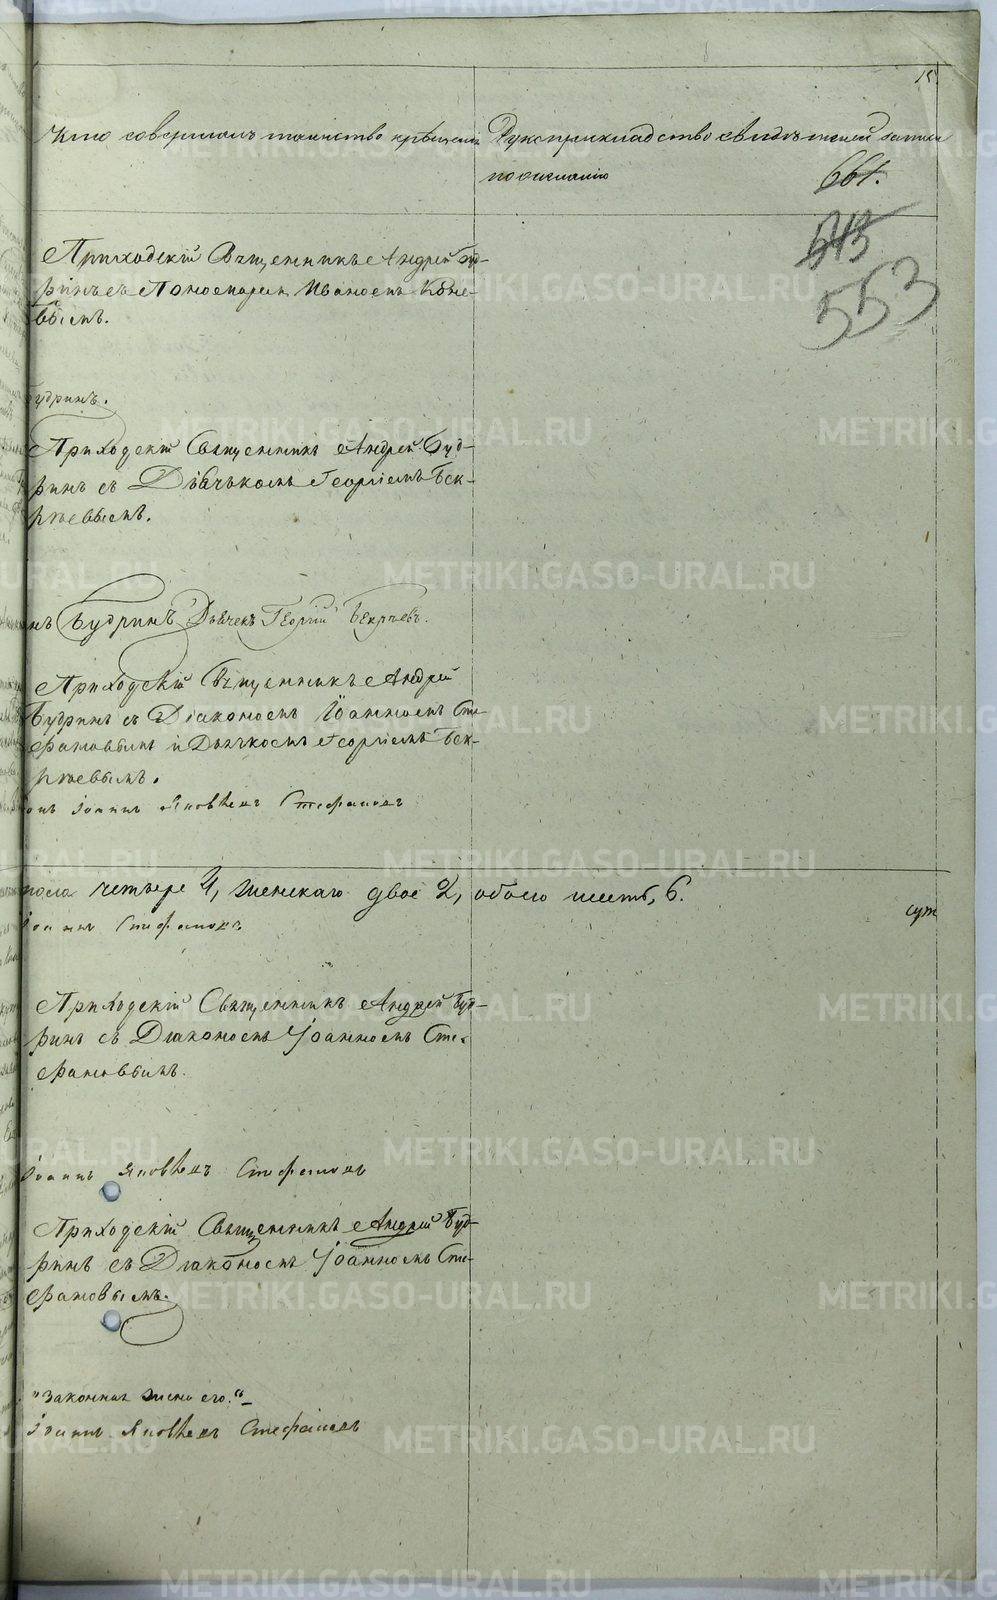 15
Кто совершалъ таинство крѣщенія
Рукоприкладство свидѣтелей записи
по желанію
661.
543
553
Приходскій Священникъ Андрей Буд-
ринъ съ Пономаремъ Иваномъ Коне-
вымъ.
Будринъ.
Приходскій Священникъ Андрей Буд-
ринъ съ Дьячькомъ Георгіемъ Бек-
ряевымъ.
Будринъ Дьячекъ Георгій Бекряевъ.
Приходскій Священникъ Андрей
Будринъ съ Діакономъ Іоанномъ Сте-
фановымъ и Дьячкомъ Георгіемъ Бек-
ряевымъ.
Іоаннъ Яковлевъ Стефановъ
пола четыре 4, женскаго двое 2, обоего шесть, 6.
Іоаннъ Стефановъ
Приходскій Священникъ Андрей Буд-
ринъ съ Діакономъ Іоанномъ Сте-
фановымъ.
Іоаннъ Яковлевъ Стефановъ
Приходскій Священникъ Андрей Буд-
ринъ съ Діакономъ Іоанномъ Сте-
фановымъ.
"Законная жена его."
Іоаннъ Яковлевъ Стефановъ
METRIKI.GASO-URAL.RU